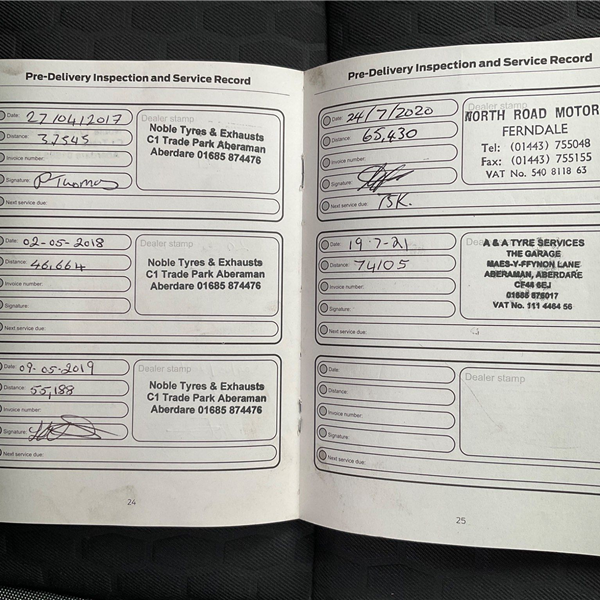 Pre-Delivery Inspection and Service Record
Date: 27/04/2017
Distance: 37545
Invoice number:
Signature: P Thomas
Next service due:
Dealer stamp
Noble Tyres & Exhausts
C1 Trade Park Aberaman
Aberdare 01685 874476
Date: 02-05-2018
Distance: 46,664
Invoice number:
Signature:
Next service due:
Dealer stamp
Noble Tyres & Exhausts
C1 Trade Park Aberaman
Aberdare 01685 874476
Date: 09-05-2019
Distance: 55,188
Invoice number:
Signature:
Next service due:
Dealer stamp
Noble Tyres & Exhausts
C1 Trade Park Aberaman
Aberdare 01685 874476
24
Pre-Delivery Inspection and Service Record
Date: 24/7/2020
Distance: 65,430
Invoice number:
Signature:
Next service due: 75K.
NORTH ROAD MOTOR
FERNDALE
Tel: (01443) 755048
Fax: (01443) 755155
VAT No. 540 8118 63
Date: 19-7-21
Distance: 74105
Invoice number:
Signature:
Next service due:
A & A TYRE SERVICES
THE GARAGE
MAES-Y-FFYNON LANE
ABERAMAN, ABERDARE
CF44 6EJ
01685 876017
VAT No. 111 4464 56
Date:
Distance:
Invoice number:
Signature:
Next service due:
Dealer stamp
25